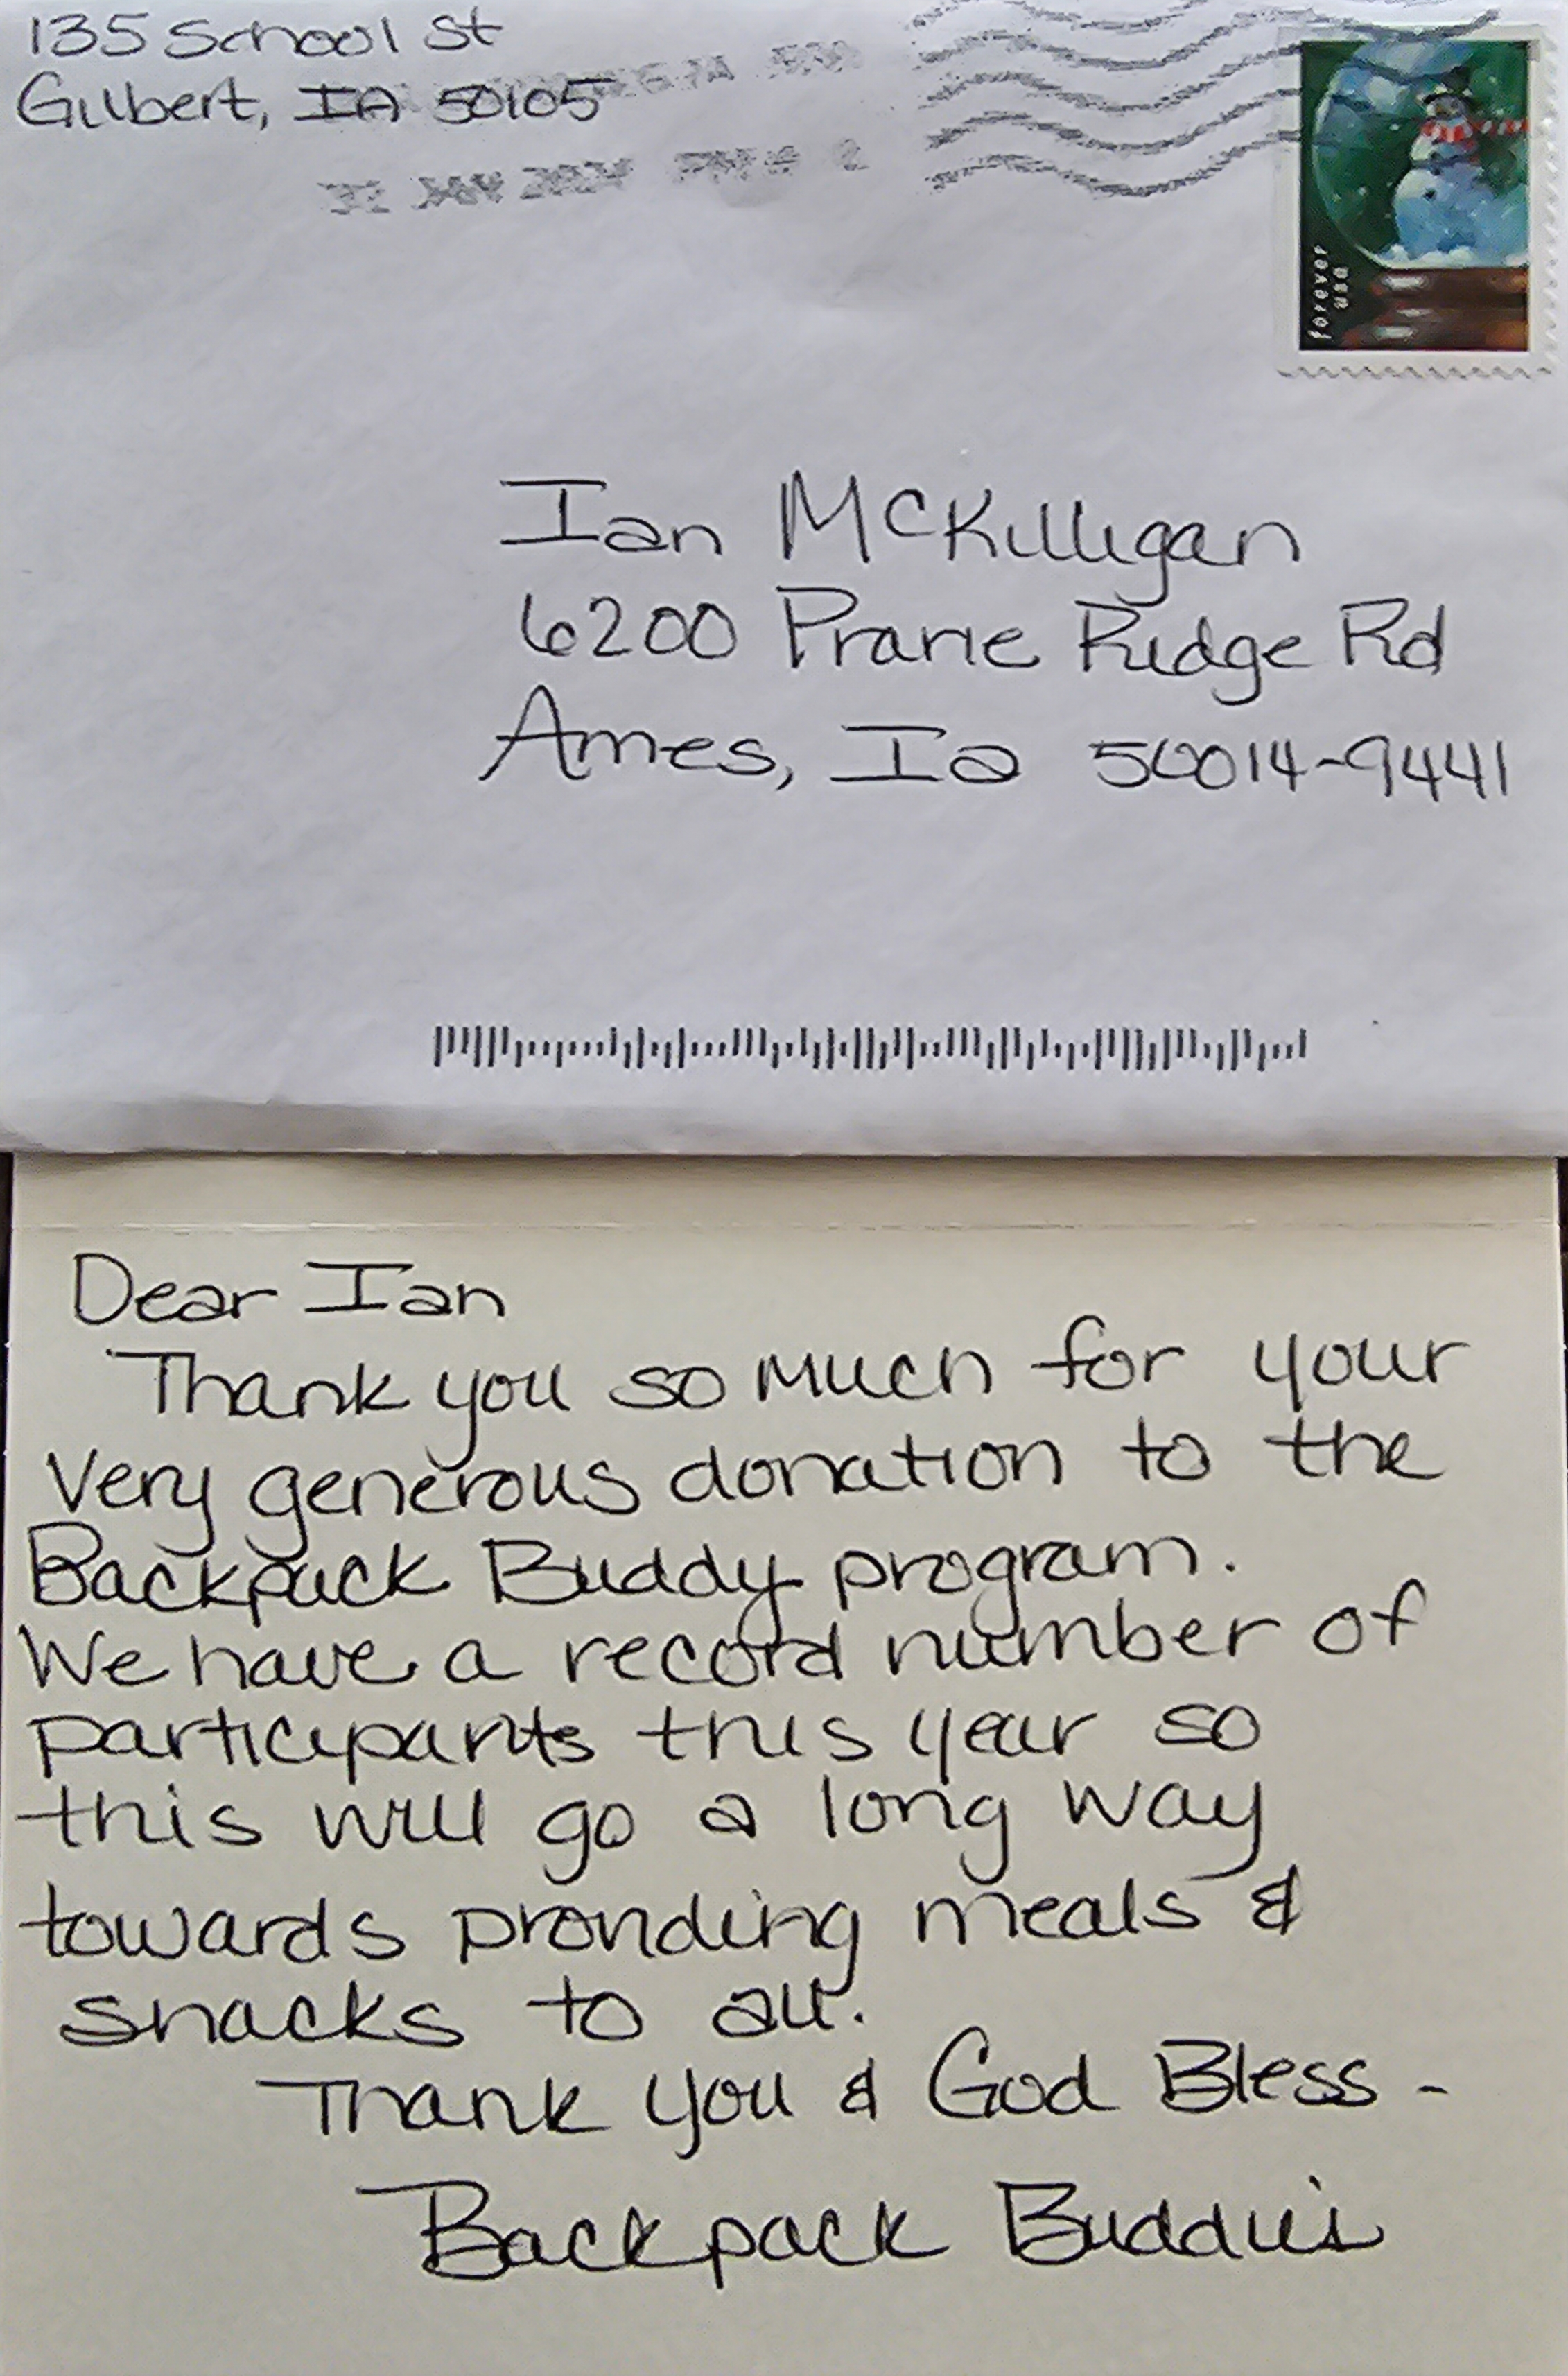 135 School St
Gilbert, IA 50105
31 JAN 2024 PM
forever
usa
Ian McKilligan
6200 Prarie Ridge Rd
Ames, Ia 50014-9441
Dear Ian
Thank you so much for your
very generous donation to the
Backpack Buddy program.
We have a record number of
participants this year so
this will go a long way
towards providing meals &
snacks to all.
Thank you & God Bless -
Backpack Buddies